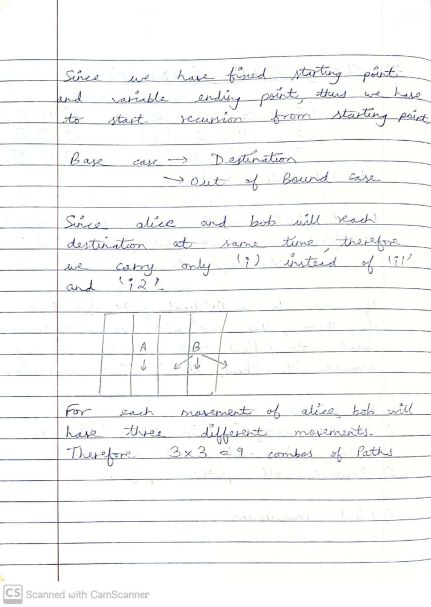 Since we have fixed starting point
and variable ending point, thus we have
to start recursion from starting point
Base case → Destination
→ Out of Bound case
Since alice and bob will reach
destination at same time, therefore
we carry only 'i' instead of 'i1'
and 'i2'.
A B
For each movement of alice, bob will
have three different movements.
Therefore 3x3 = 9 combos of Paths
CS Scanned with CamScanner